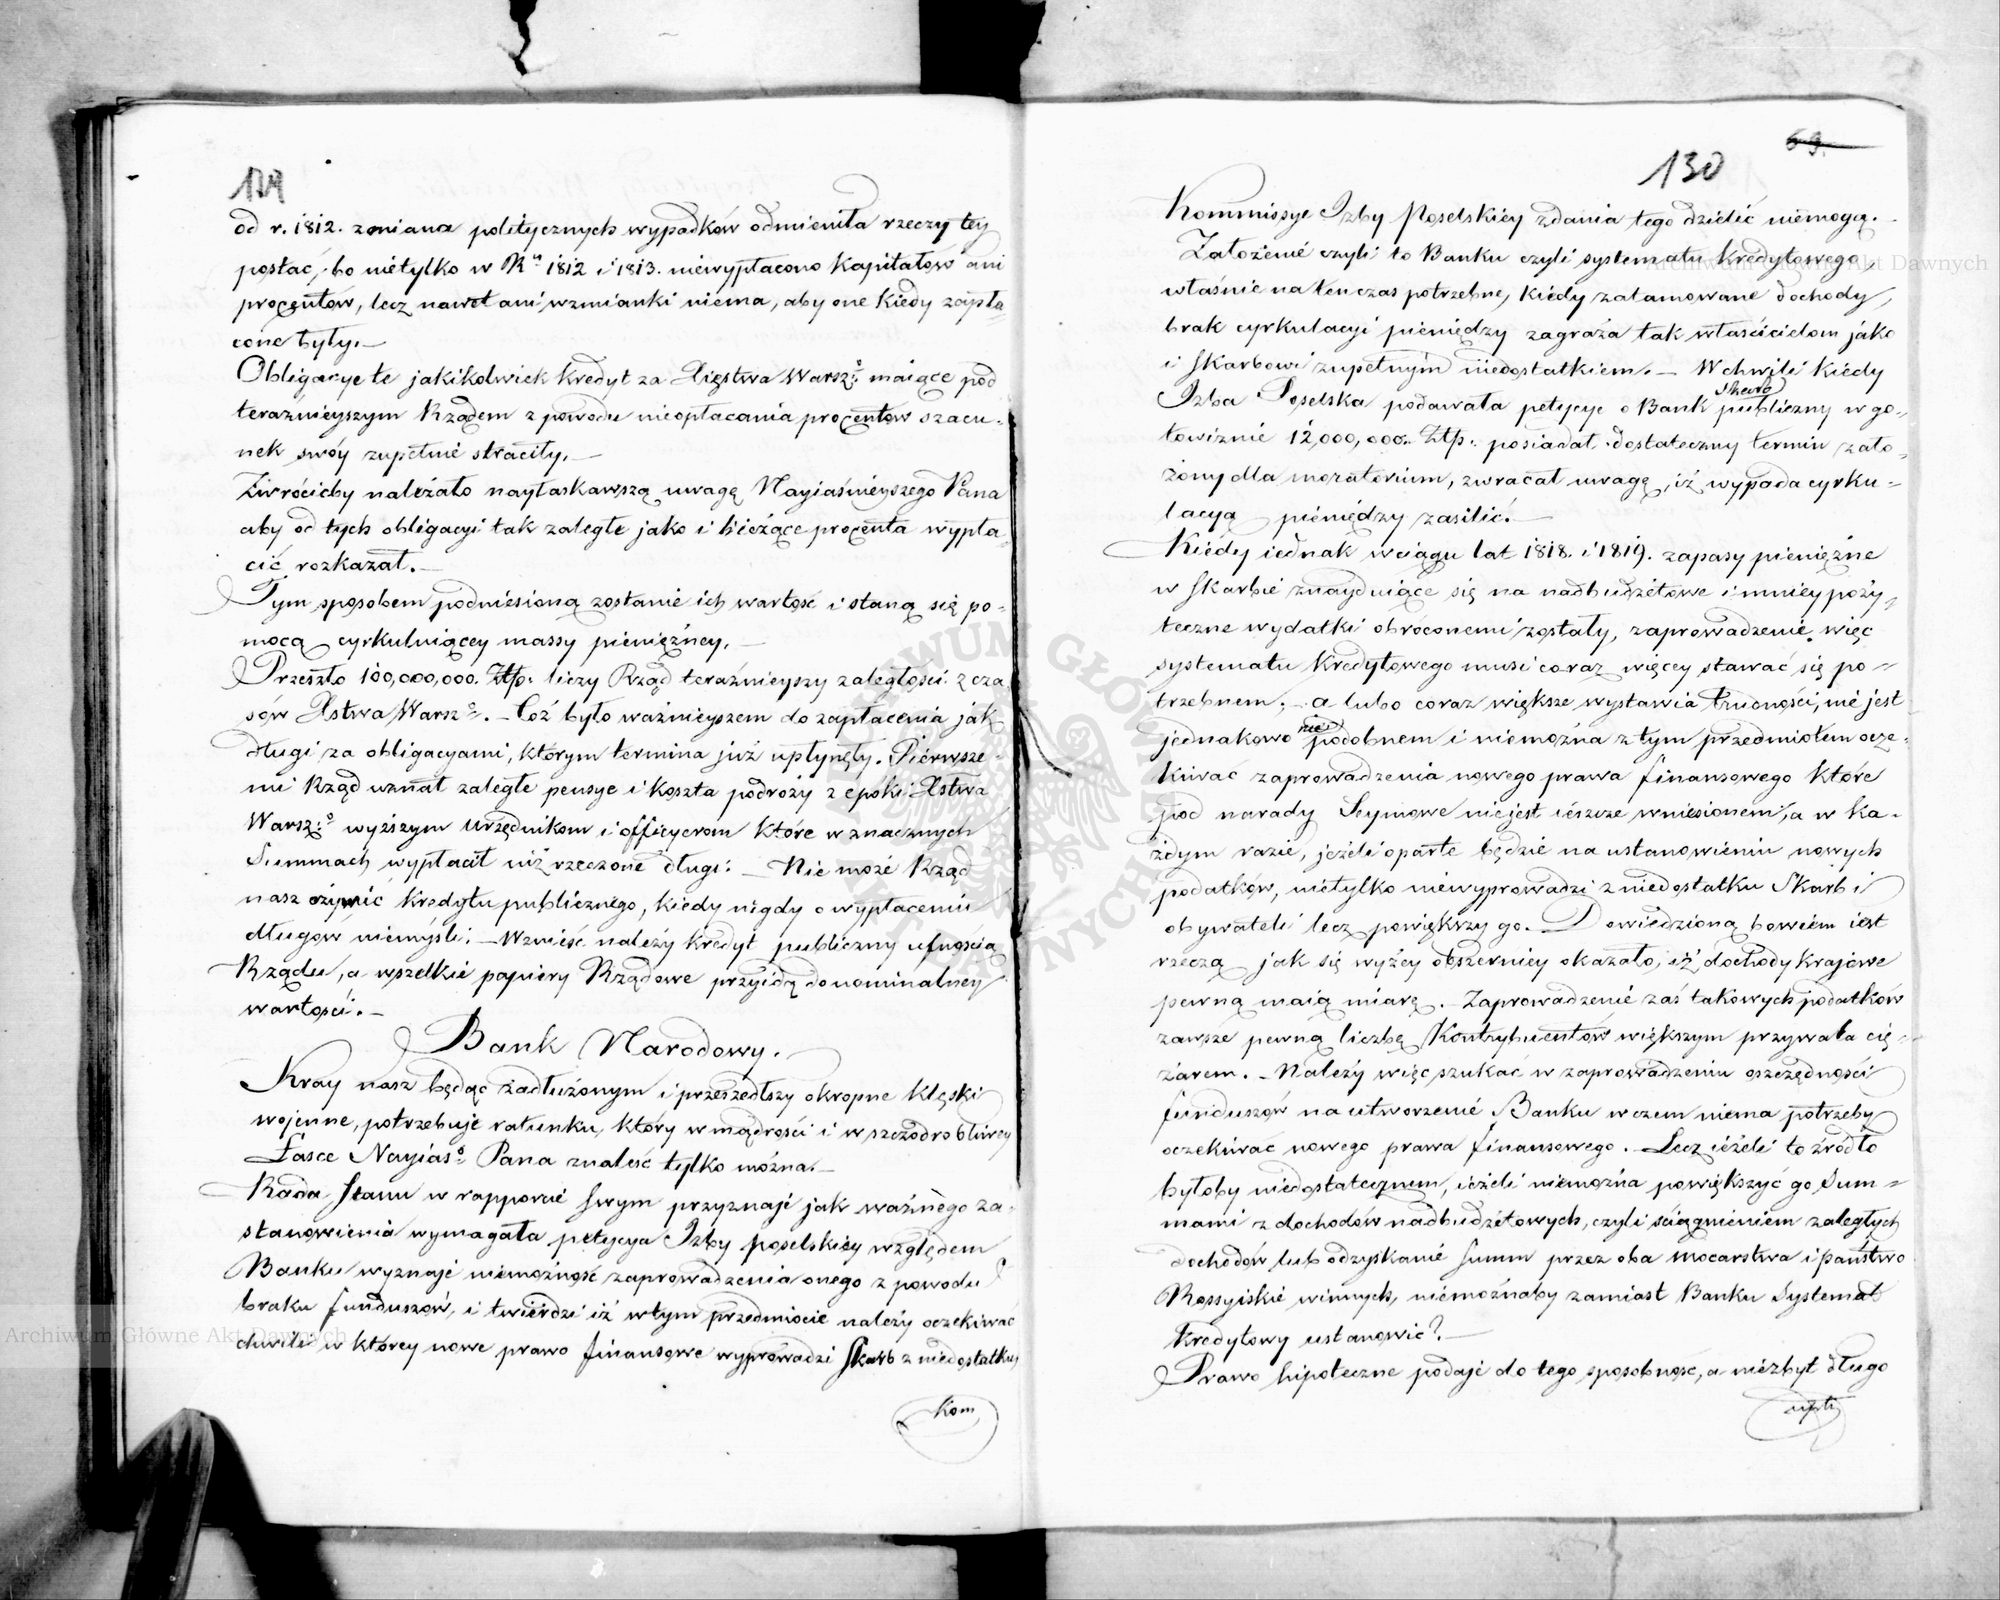 129
od r. 1812. zmiana politycznych wypadków odmieniła rzeczy tey
postać, bo nietylko w Ru 1812 i 1813. niewypłacono Kapitałów ani
procentów, lecz nawet ani wzmianki niema, aby one kiedy zapła=
cone były.—
Obligacye te jakikolwiek kredyt za Xięstwa Warsz:o maiące pod
teraznieyszym Rządem z powodu nieopłacania procentów szacu-
nek swóy zupełnie straciły.—
Zwrócićby należało nayłaskawszą uwagę Nayiaśnieyszego Pana
aby od tych obligacyi tak zaległe jako i bieżące procenta wypła
cić rozkazał.—
Tym sposobem podniesioną zostanie ich wartość i staną się po-
mocą cyrkuluiącey massy pieniężney.—
Przeszło 100,000,000. Złtp. liczy Rząd teraźnieyszy zaległości z cza
sów Xstwa Warsz:o. — Coż było ważnieyszem do zapłacenia jak
długi za obligacyami, którym termina już upłynęły. Pierwsze-
mi Rząd uznał zaległe pensye i koszta podróży z epoki Xstwa
Warsz:o wyższym urzędnikom i officyerom które w znacznych
Summach wypłacił niż rzeczone długi: — Nie może Rząd
nasz ożywić kredytu publicznego, kiedy nigdy o wypłaceniu
długow niemyśli: — Wznieść należy kredyt publiczny ufnością
Rządu, a wszelkie papiery Rządowe przyidą do nominalney
wartości.—
Bank Narodowy.
Kray nasz będąc zadłużonym i przeszedłszy okropne klęski
wojenne, potrzebuje ratunku, który w mądrości i w szczodrobliwey
Łasce Nayias:o Pana znaleść tylko można.—
Rada Stanu w rapporcie swym przyznaje jak ważnego za-
stanowienia wymagała petycya Izby poselskiey względem
Banku wyznaje niemożność zaprowadzenia onego z powodu
braku funduszów, i twierdzi iż w tym przedmiocie należy oczekiwać
chwili w którey nowe prawo finansowe wyprowadzi Skarb z niedostatku,
Kom
69.
130
Kommissye Izby Poselskiey zdania tego dzielić niemogą.—
Założenie czyli to Banku czyli systematu kredytowego,
właśnie natenczas potrzebne, kiedy zatamowane dochody,
brak cyrkulacyi pieniędzy zagraża tak właścicielom jako
i Skarbowi zupełnym niedostatkiem.— W chwili kiedy
Izba Poselska podawała petycye o Bank publiczny w go-
Skarb
towiznie 12,000,000. Złtp. posiadał. dostateczny termin zało-
żony dla moratorium, zwracał uwagę, iż wypada cyrku-
lacyą pieniędzy zasilić.—
Kiedy iednak w ciągu lat 1818. i 1819. zapasy pieniężne
w Skarbie znayduiące się na nadbudżetowe i mniey poży,
teczne wydatki obróconemi zostały, zaprowadzenie więc
systematu kredytowego musi coraz więcey stawać się po-
trzebnem; — a lubo coraz większe wystawia trudności, nie jest
jednakowo niepodobnem i niemożna z tym przedmiotem ocze-
kiwać zaprowadzenia nowego prawa finansowego które
pod narady Seymowe nie jest ieszcze wniesionem, a w ka-
żdym razie, jeżeli oparte będzie na ustanowieniu nowych
podatków, nietylko niewyprowadzi z niedostatku Skarb i
obywateli lecz powiększy go. Dowiedzioną bowiem iest
rzeczą jak się wyżey obszerniey okazało, iż dochody krajowe
pewną maią miarę. Zaprowadzenie zaś takowych podatków
zawsze pewną liczbę Kontrybuentów większym przywała cię-
żarem. — Należy więc szukać w zaprowadzeniu oszczędności
funduszów na utworzenie Banku w czem niema potrzeby
oczekiwać nowego prawa finansowego. Lecz ieżeli to źródło
byłoby niedostatecznem, ieżeli niemożna powiększyć go Sum-
mami z dochodów nadbudżetowych, czyli ściągnieniem zaległych
dochodów lub odzyskanie summ przez oba mocarstwa i państwo
Rossyiskie winnych, niemożnaby zamiast Banku Systemat
kredytowy ustanowić?—
Prawo hipoteczne podaje do tego sposobność, a niezbyt długo